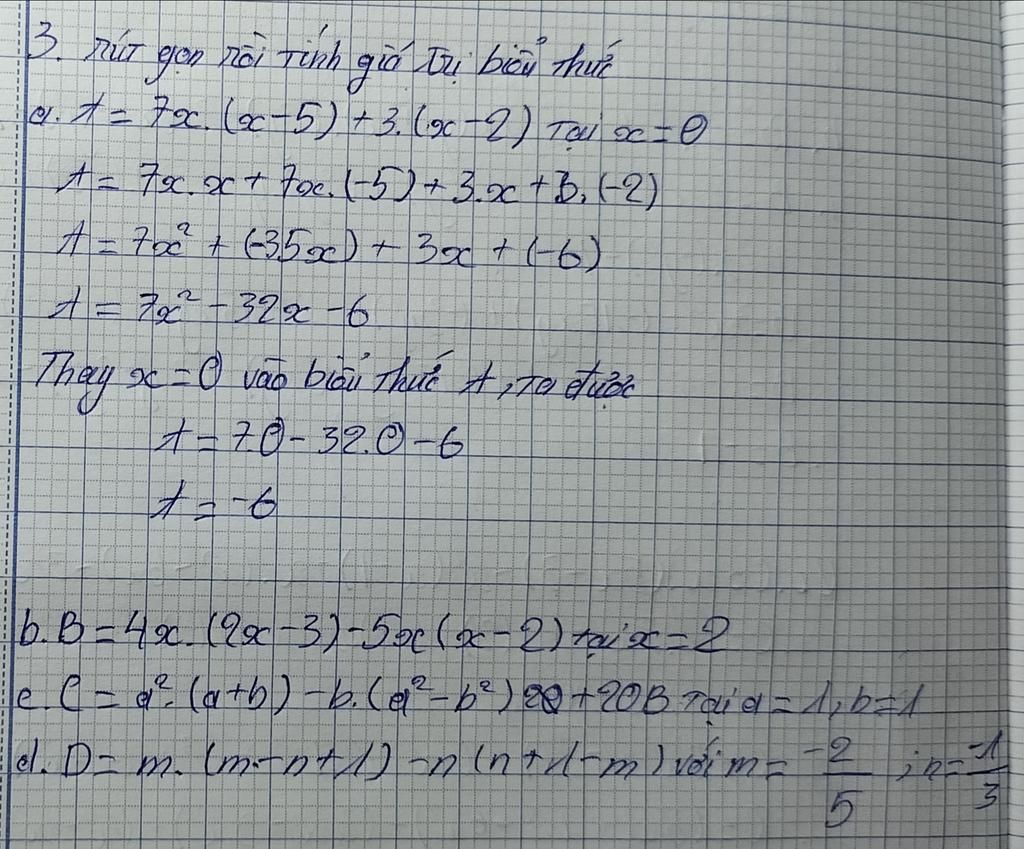 3. rút gọn rồi tính giá trị biểu thức
a. A = 7x.(x-5)+3.(x-2) tại x=0
A = 7x.x+7x.(-5)+3.x+3.(-2)
A = 7x²+(-35x)+3x+(-6)
A = 7x²-32x-6
Thay x=0 vào biểu thức A, ta được
A = 7.0-32.0-6
A = -6
b. B=4x.(2x-3)-5x(x-2) tại x=2
c. C = a².(a+b)-b.(a²-b²) +20B tại a=1, b=1
d. D= m.(m-n+1)-n(n+1-m) với m= -2/5 ; n= -1/3